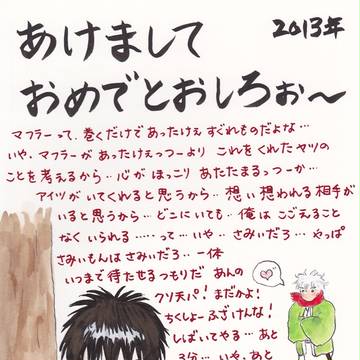 2013年
あけまして
おめでとおしろぉ〜
マフラーって、巻くだけであったけぇ すぐれものだよな…
いや、マフラーが あったけぇっつーより これをくれたヤツの
ことを考えるから‥心が ほっこり あたたまるっつーか…
アイツが いてくれると思うから‥ 想い 想われる 相手が
いると思うから‥ どこにいても‥俺は こごえること
なく いられる……って…いや‥さみィだろ…やっぱ
さみいもんは さみいだろ‥一体
いつまで待たせるつもりだ あんの
クソ天パ！まだかよ！
ちくしょーふざけんな！
しばいてやる…あと
3分…いや、あと